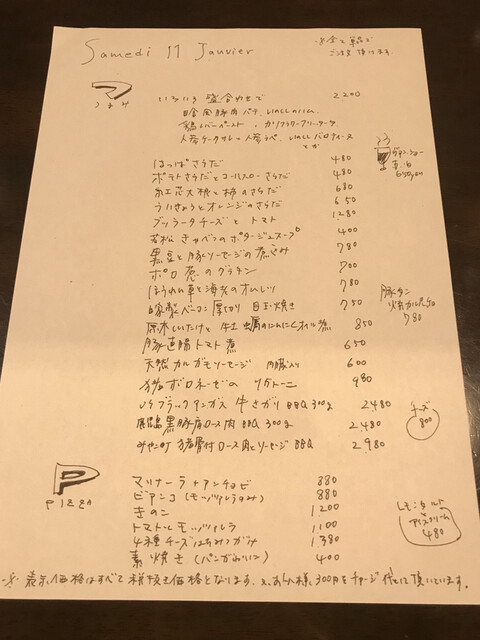 Samedi 11 Janvier
※全て単品で
ご注文頂けます
つまみ
いろいろ盛合わせで 2200
田舎風豚肉パテ
鶏レバーペースト・カリフラワー
人参ラペ
とか
はっぱさらだ 480
ポテトさらだとコールスローさらだ 480
紅芯大根と柿のさらだ 680
ういきょうとオレンジのさらだ 650
ブッラータチーズとトマト 1280
若松きゃべつのポタージュスープ 400
黒豆と豚ソーセージの煮込み 780
ポロ葱のグラタン 700
ほうれん草と海老のオムレツ 780
自家製ベーコン厚切り 目玉焼き 750
原木しいたけと牡蠣のにんにくオイル煮 850
豚直腸トマト煮 650
天然カルガモソーセージ 内臓入り 600
猪ボロネーゼのリガトーニ 980
USブラックアンガス牛さがりBBQ 300g 2480
鹿児島黒豚肩ロース肉BBQ 300g 2480
みやこ町猪骨付ロース肉とソーセージBBQ 2980
ヴァンショー
赤・白
650yen
豚タン
780
チーズ
800
P
PIZZA
マリナーラ+アンチョビ 880
ビアンコ(モッツァレラのみ) 880
きのこ 1,200
トマトとモッツァレラ 1,100
4種チーズはちみつがけ 1,380
素焼き(パンがわりに) 400
レモンタルト
アイスクリーム
480
※表示価格はすべて税抜き価格となります。又、お1人様300円をチャージ代として頂いています。